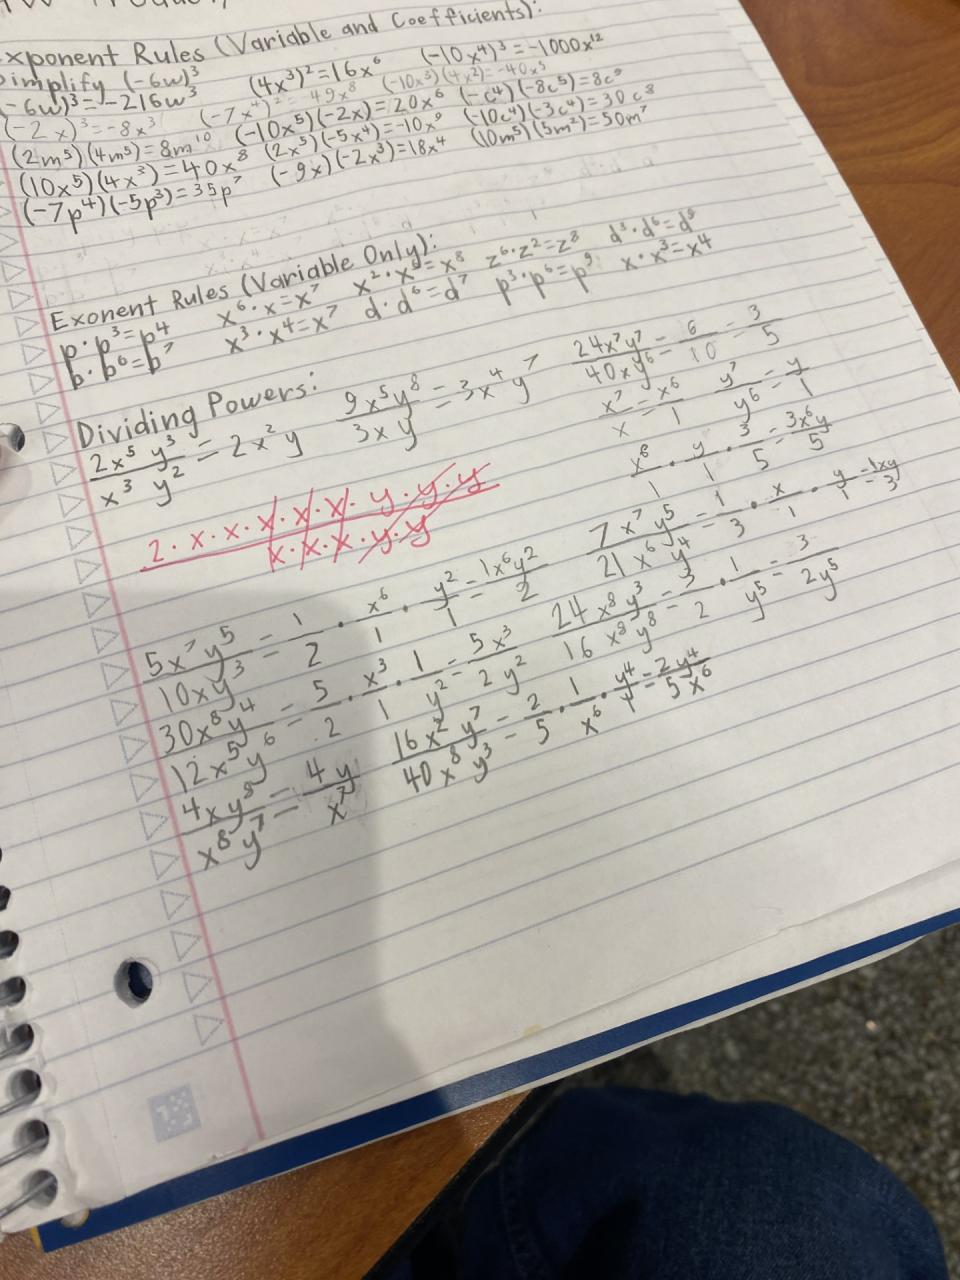 xponent Rules (Variable and Coefficients):
implify (-6w)³
(-6w)³=-216w³ (4x³)²=16x⁶ (-10x⁴)³=-1000x¹²
(-2x)³=-8x³ (-7x⁴)²=-49x⁸ (-10x³)(4x²)=-40x⁵
(2m⁵)(4m⁵)=8m¹⁰ (-10x⁵)(-2x)=20x⁶ (-c⁴)(-8c⁵)=8c⁹
(10x⁵)(4x³)=40x⁸ (2x⁵)(-5x⁴)=-10x⁹ (-10c⁴)(-3c⁴)=30c⁸
(-7p⁴)(-5p³)=35p⁷ (-9x)(-2x³)=18x⁴ (10m⁵)(5m²)=50m⁷
Exonent Rules (Variable Only):
p·p³=p⁴ x⁶·x=x⁷ x²·x⁶=x⁸ z⁶·z²=z⁸ d³·d⁶=d⁹
b·b⁶=b⁷ x³·x⁴=x⁷ d·d⁶=d⁷ p³·p⁶=p⁹ x·x³=x⁴
Dividing Powers:
2x⁵y³/x³y²=2x²y 9x⁵y⁸/3xy=3x⁴y⁷ 24x⁷y⁷/40xy⁶=6/10=3/5
x⁷/x=x⁶/1 y⁷/y⁶=y/1
x⁶/1·y/1·3/5=3x⁶y/5
2·x·x·x·x·x·y·y·y
x·x·x·y·y
5x⁷y⁵/10xy³=1/2·x⁶/1·y²/1=1x⁶y²/2 7x⁷y⁵/21x⁶y⁴=1/3·x/1·y/1=1xy/3
30x⁸y⁴/12x⁵y⁶=5/2·x³/1·1/y²=5x³/2y² 24x⁸y³/16x⁸y⁸=3/2·1/y⁵=3/2y⁵
4xy⁸/x⁸y⁷=4y/x⁷ 16x²y⁷/40x⁸y³=2/5·1/x⁶·y⁴/1=2y⁴/5x⁶